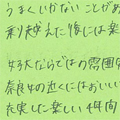 うまくいかないことがあ
乗り越えた後には楽
女子大ならではの雰囲気
奈良女の近くにはおいし
充実した楽しい4年間